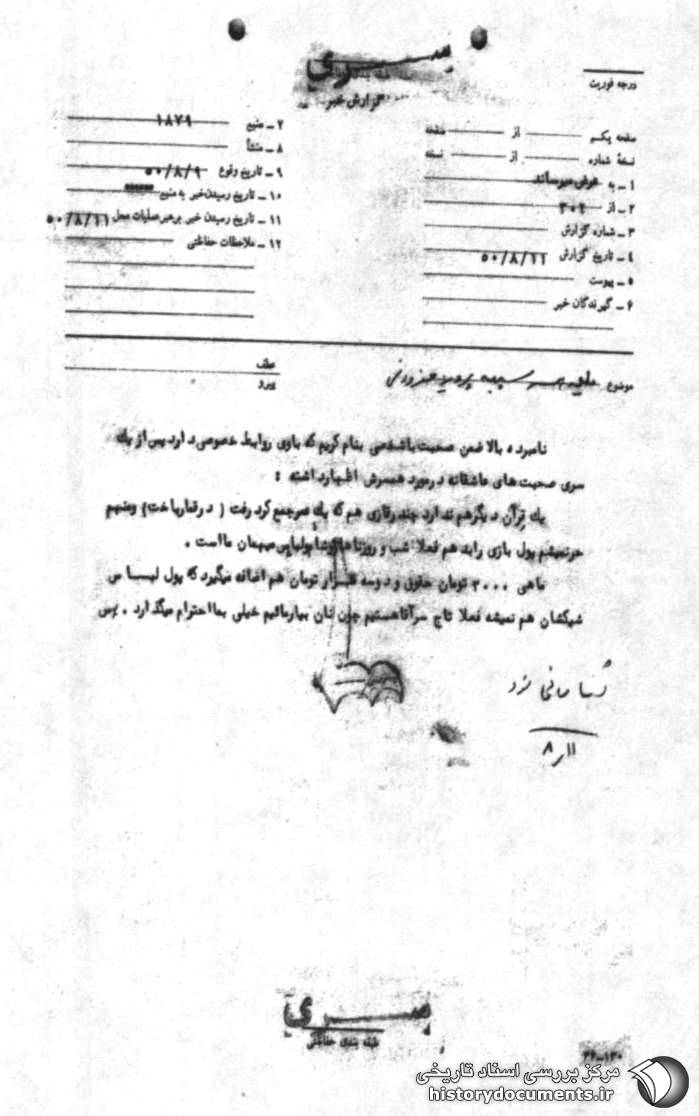 سری
طبقه بندی حفاظتی
گزارش خبر
درجه فوریت
صفحه یکم از صفحه
نسخهٔ شماره از نسخه
۱ - به عرض میرساند
۲ - از ۳۰۲
۳ - شماره گزارش
۴ - تاریخ گزارش ۵۰/۸/۱۱
۵ - پیوست
۶ - گیرندگان خبر
۷ - منبع ۱۸۷۹
۸ - منشأ
۹ - تاریخ وقوع ۵۰/۸/۹
۱۰ - تاریخ رسیدن خبر به منبع
۱۱ - تاریخ رسیدن خبر برهبر عملیات محل ۵۰/۸/۱۱
۱۲ - ملاحظات حفاظتی
موضوع
عطف
پیرو
نامبرده بالا ضمن صحبت باشخصی بنام کریم که باوی روابط خصوصی دارد پس از یک
سری صحبت های عاشقانه درمورد همسرش اظهارداشته :
یک قرآن دیگرهم ندارد چندرقازی هم که پک عمر جمع کرد رفت ( درقمارباخت) ومنهم
حرنمیشم پول بازی رابدهم فعلا شب و روز مهمان مااست .
ماهی ۲۰۰۰ تومان حقوق و دوسه هزار تومان هم اضافه میگیرد که پول لباس
شیکشان هم نمیشه فعلا تاج سرآقاهستیم چون نان بیارمائیم خیلی بمااحترام میگذارد . پس
۱۱ر۸
سری
طبقه بندی حفاظتی
۳۶-۱۳۰
مرکز بررسی اسناد تاریخی
historydocuments.ir